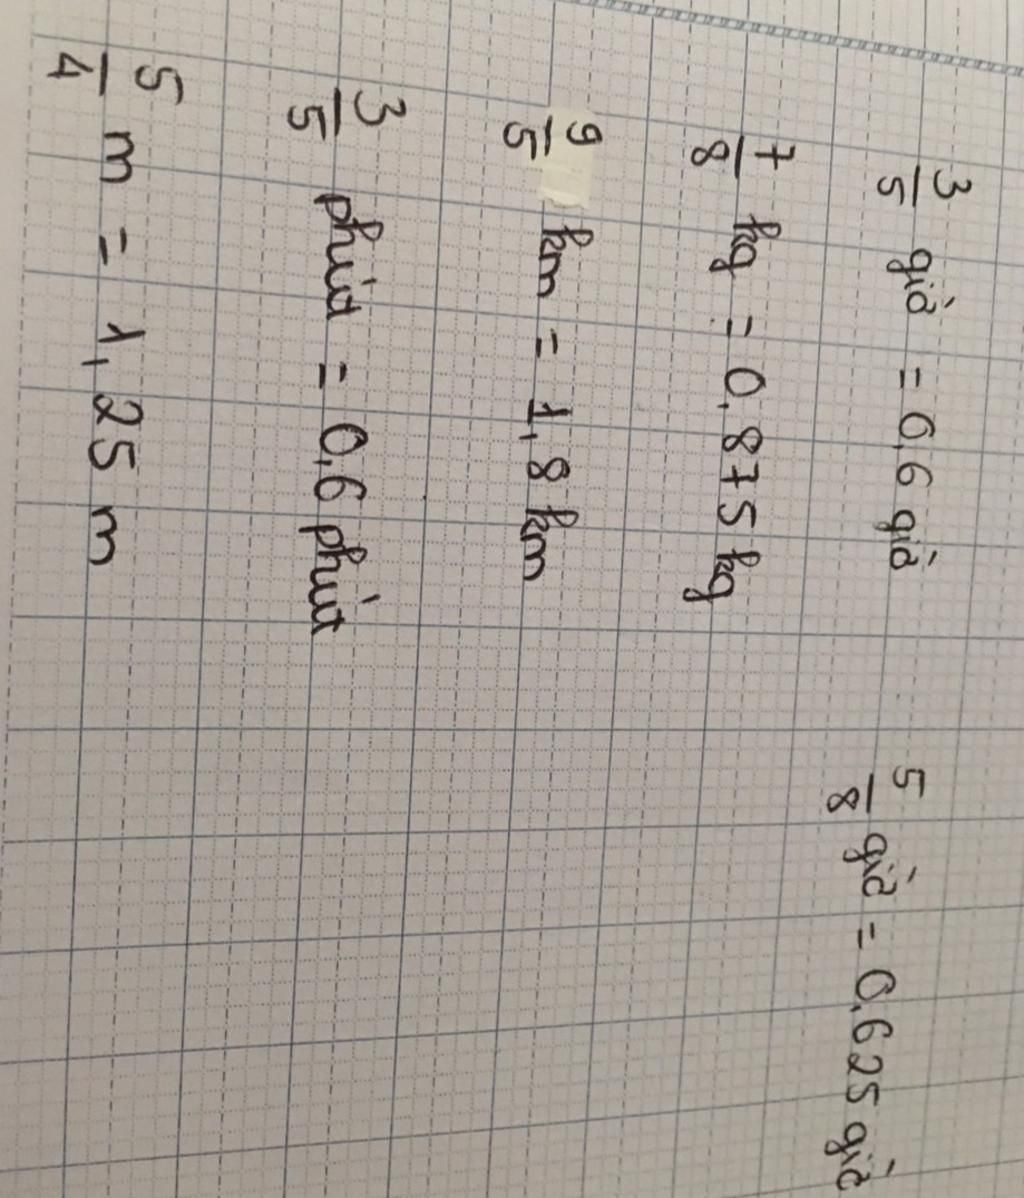 3/5 giờ = 0,6 giờ
7/8 kg = 0,875 kg
9/5 km = 1,8 km
3/5 phút = 0,6 phút
5/4 m = 1,25 m
5/8 giờ = 0,625 giờ